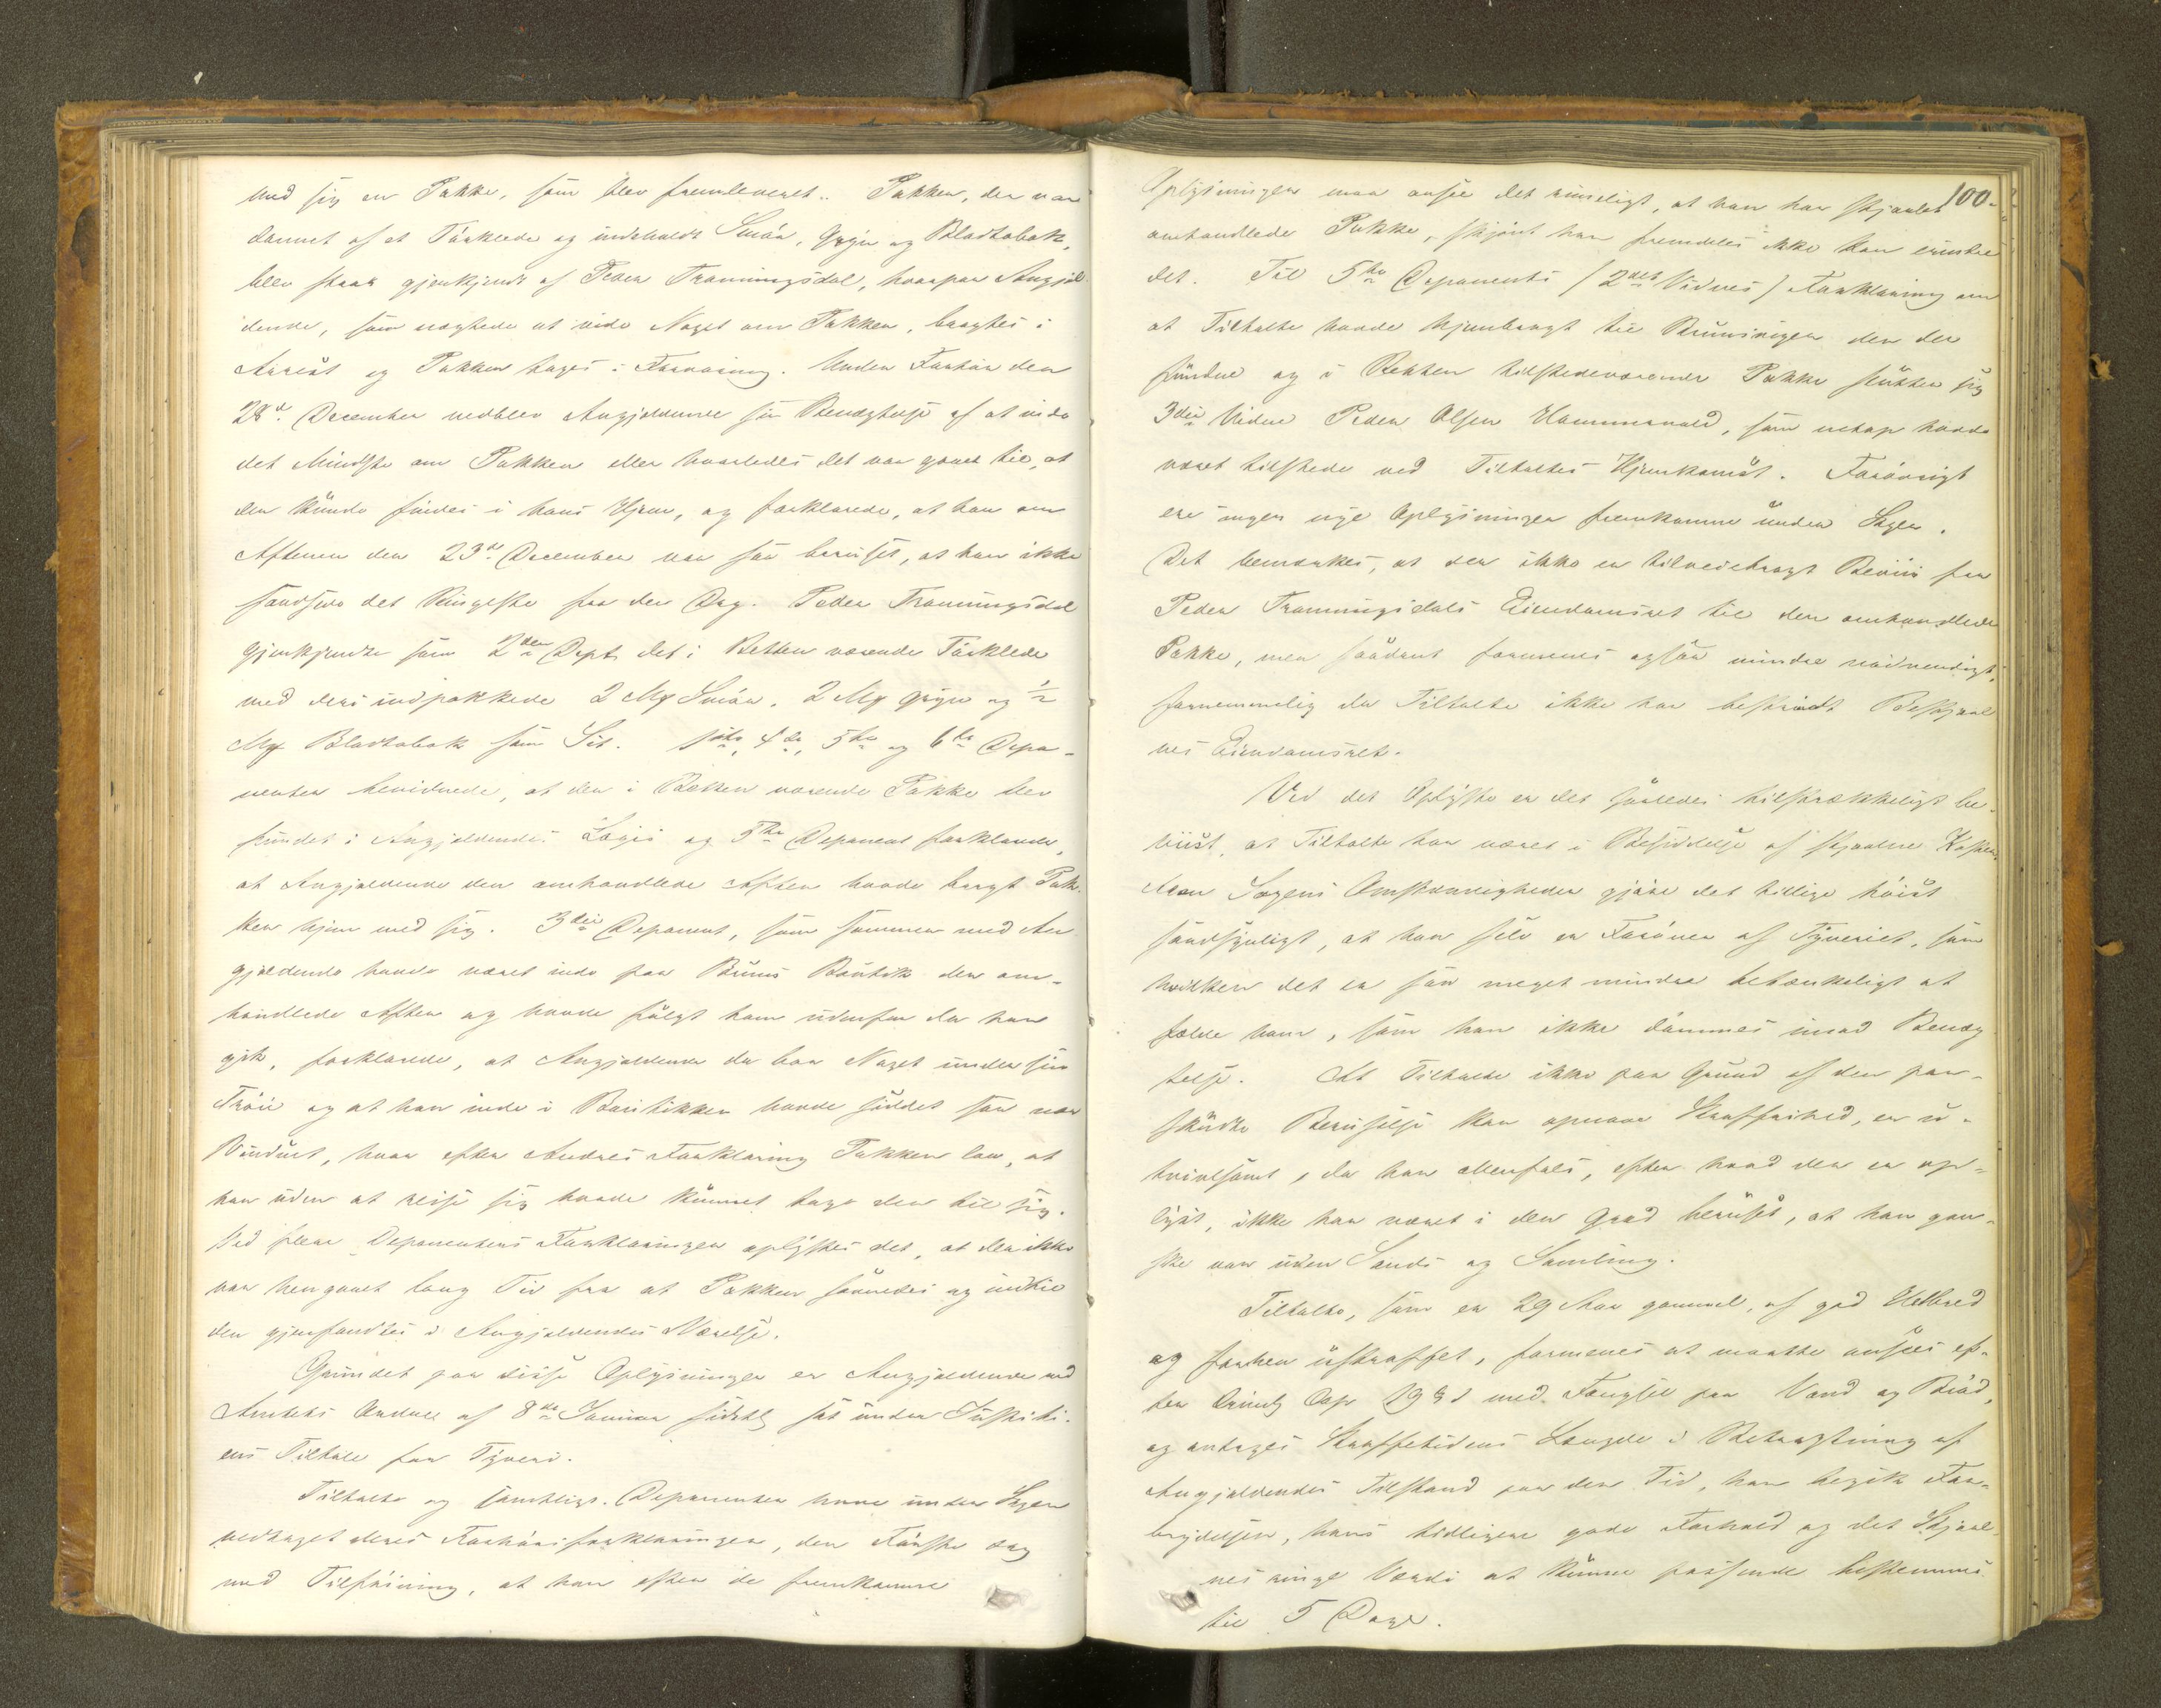 med sig en Pakke, som blev fremleveret. Pakken, der var
dannet af et Tørklæde og indeholdt Smør, Gryn og Bladtobak,
blev strax gjenkjendt af Peder Tranningsdal, hvorpaa Angjæl-
dende, som nægtede at vide Noget om Pakken, bragtes i
Arrest og Pakken toges i Forvaring. Under Forhør den
28d December vedblev Angjældende sin Benægtelse af at vide
det Mindste om Pakken eller hvorledes det var gaaet til, at
den kunde findes i hans Hjem, og forklarede, at han om
Aftenen den 23d December var saa beruset, at han ikke
sandsede det Ringeste fra den Dag. Peder Tranningsdal
gjenkjendte som 2den Dept det i Retten værende Tørklæde
med deri indpakkede 2 Mk Smør, 2 Mk Gryn og 1/2
Mk Bladtobak som Sit. 1ste, 4de, 5te og 6te Depo-
nenter bevidnede, at den i Retten værende Pakke blev
fundet i Angjældendes Logis og 5te Deponent forklarede,
at Angjældende den omhandlede Aften havde bragt Pak-
ken hjem med sig. 3die Deponent, som sammen med An-
gjældende havde været inde paa Bruns Boutik den om-
handlede Aften og havde fulgt ham udenfor da han
gik, forklarede, at Angjældende da bar Noget under sin
Trøie og at han inde i Boutikken havde siddet saa nær
Vinduet, hvor efter Andres Forklaring Pakken laa, at
han uden at reise sig havde kunnet tage den til sig.
Ved flere Deponenters Forklaringer oplystes det, at der ikke
var hengaaet lang Tid fra at Pakken savnedes og indtil
den gjenfandtes i Angjældendes Værelse.
Grundet paa disse Oplysninger er Angjældende ved
Amtets Ordre af 8de Januar sidstl sat under Justiti-
ens Tiltale for Tyveri.
Tiltalte og samtlige Deponenter have under Sagen
vedtaget deres Forhørsforklaringer, den Første dog
med Tilføining, at han efter de fremkomne
100.
Oplysninger maa ansee det rimeligt, at han har stjaalet
omhandlede Pakke, skjønt han fremdeles ikke kan erindre
det. Til 5te Deponents (2det Vidnes) Forklaring om
at Tiltalte havde hjembragt til Bruusvigen den der
fundne og i Retten tilstedeværende Pakke slutter sig
3die Vidne Peder Olsen Hammervold, som netop havde
været tilstede ved Tiltaltes Hjemkomst. Forøvrigt
ere ingen nye Oplysninger fremkomne under Sagen.
Det bemærkes, at der ikke er tilveiebragt Beviis for
Peder Tranningsdals Eiendomsret til den omhandlede
Pakke, men saadant formenes ogsaa mindre nødvendigt,
fornemmelig da Tiltalte ikke har bestridt Bestjaal-
nes Eiendomsret.
Ved det Oplyste er det saaledes tilstrækkeligt be-
viist, at Tiltalte har været i Besiddelse af stjaalne Koster.
Men Sagens Omstændigheder gjøre det tillige høist
sandsynligt, at han selv er Forøver af Tyveriet, som
hvilken det er saa meget mindre betænkeligt at
fælde ham, som han ikke dømmes imod Benæg-
telse. At Tiltalte ikke paa Grund af den paa-
skudte Beruselse kan opnaae Straffrihed, er u-
tvivlsomt, da han allenfals, efter hvad der er op-
lyst, ikke har været i den Grad beruset, at han gan-
ske var uden Sands og Samling.
Tiltalte, som er 29 Aar gammel, af god Helbred
og forhen ustraffet, formenes at maatte ansees ef-
ter Criml Cap 19 § 1 med Fængsel paa Vand og Brød,
og antages Straffetidens Længde i Betragtning af
Angjældendes Tilstand paa den Tid, han begik For-
brydelsen, hans tidligere gode Forhold og det Stjaal-
nes ringe Værdi at kunne passende bestemmes
til 5 Dage.